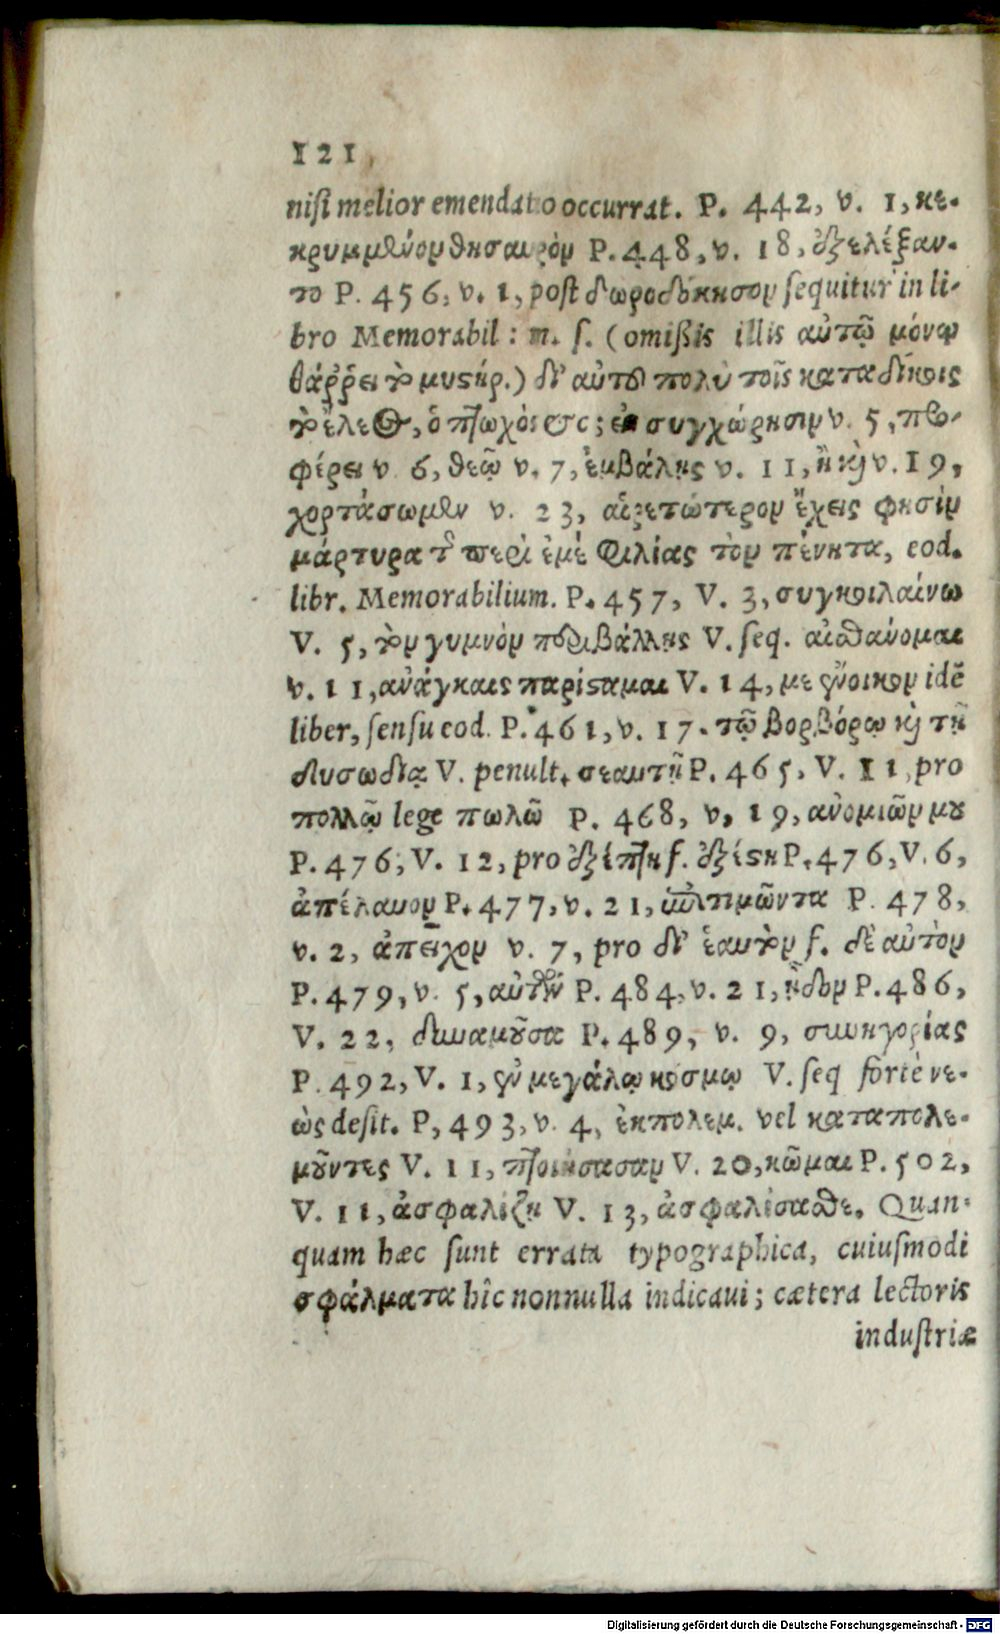 121
nisi melior emendatio occurrat. P. 442, v. 1, κε-
κρυμμένον θησαυρὸν P. 448, v. 18, ἐξελέξαν-
το P. 456, v. 1, post δωροδόκησον sequitur in li-
bro Memorabil: m. s. (omissis illis αὐτῷ μόνῳ
θάῤῥει τὸ μυστήρ.) δι' αὐτοῦ πολὺ τοῖς καταδίκοις
τὸ ἔλεος, ὁ πτωχὸς &c; συγχώρησιν v. 5, προ-
φέρει v. 6, θεῷ v. 7, ἐμβάλῃς v. 11, ἢ καὶ v. 19,
χορτάσωμεν v. 23, αἱρετώτερον ἔχεις φησὶν
μάρτυρα τῆς περὶ ἐμὲ φιλίας τὸν πένητα, eod.
libr. Memorabilium. P. 457, V. 3, συγκοιλαίνω
V. 5, τὸν γυμνὸν περιβάλλῃς V. seq. αἰσθάνομαι
v. 11, ἀνάγκαις παρίσταμαι V. 14, με σύνοικον idē
liber, sensu eod. P. 461, v. 17. τῷ βορβόρῳ καὶ τῇ
δυσωδίᾳ V. penult. σεαυτῇ P. 465, V. 11, pro
πολλῷ lege πωλῶ P. 468, v. 19, ἀνομιῶν μου
P. 476, V. 12, pro ἐξίπτη f. ἐξίστη P. 476, V. 6,
ἀπέλαυον P. 477, v. 21, ἐπιτιμῶντα P. 478,
v. 2, ἀπεῖχον v. 7, pro δι' ἑαυτὸν f. δὲ αὐτὸν
P. 479, v. 5, αὐτῶν P. 484, v. 21, ᾔδειν P. 486,
V. 22, δυναμοῦσα P. 489, v. 9, συνηγορίας
P. 492, V. 1, σὺν μεγάλῳ κόσμῳ V. seq fortè νε-
ὼς desit. P, 493, v. 4, ἐκπολεμ. vel καταπολε-
μοῦντες V. 11, πτοιήσασαν V. 20, κῶμαι P. 502,
V. 11, ἀσφαλίζη V. 13, ἀσφαλίσασθε. Quan-
quam hæc sunt errata typographica, cuiusmodi
σφάλματα hîc nonnulla indicavi; cætera lectoris
industriæ
Digitalisierung gefördert durch die Deutsche Forschungsgemeinschaft - DFG